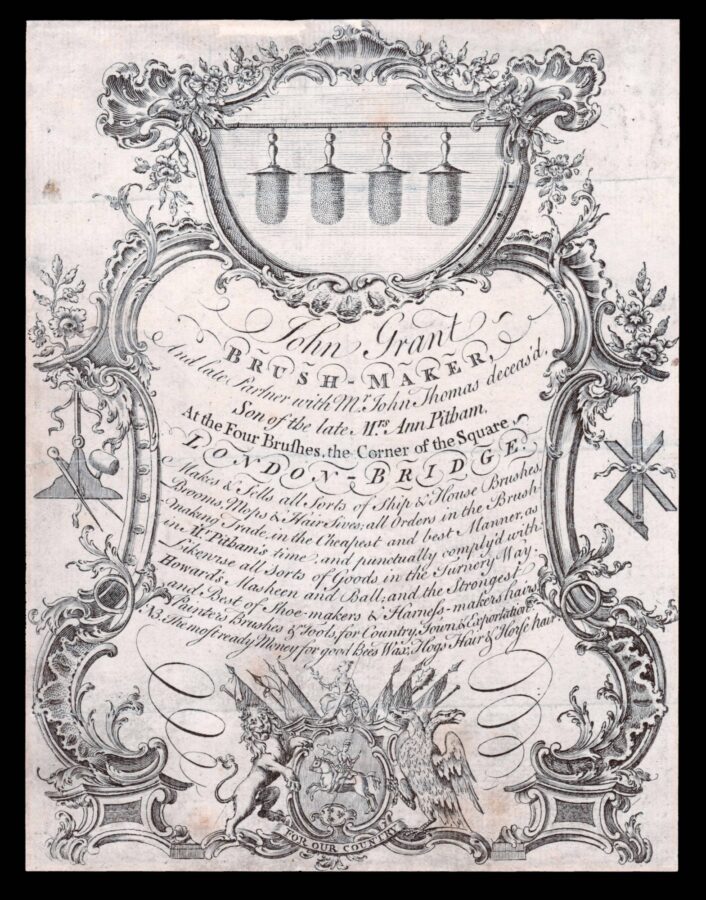 John Grant
BRUSH-MAKER,
And late Partner with Mr. John Thomas deceas'd,
Son of the late Mrs Ann Pitham,
At the Four Brushes, the Corner of the Square
LONDON-BRIDGE.
Makes & Sells all Sorts of Ship & House Brushes,
Brooms, Mops & Hair Sives; all Orders in the Brush
making Trade, in the Cheapest and best Manner, as
in Mr Pitham's time, and punctually comply'd with.
Likewise all Sorts of Goods in the Turnery Way.
Howard's Masheen and Ball; and the Strongest
and Best of Shoe-makers & Harness-makers hairs
Painters Brushes & Tools, for Country, Town, & Exportation.
NB. The most ready Money for good Bees Wax, Hogs Hair & Horse hair.
FOR OUR COUNTRY